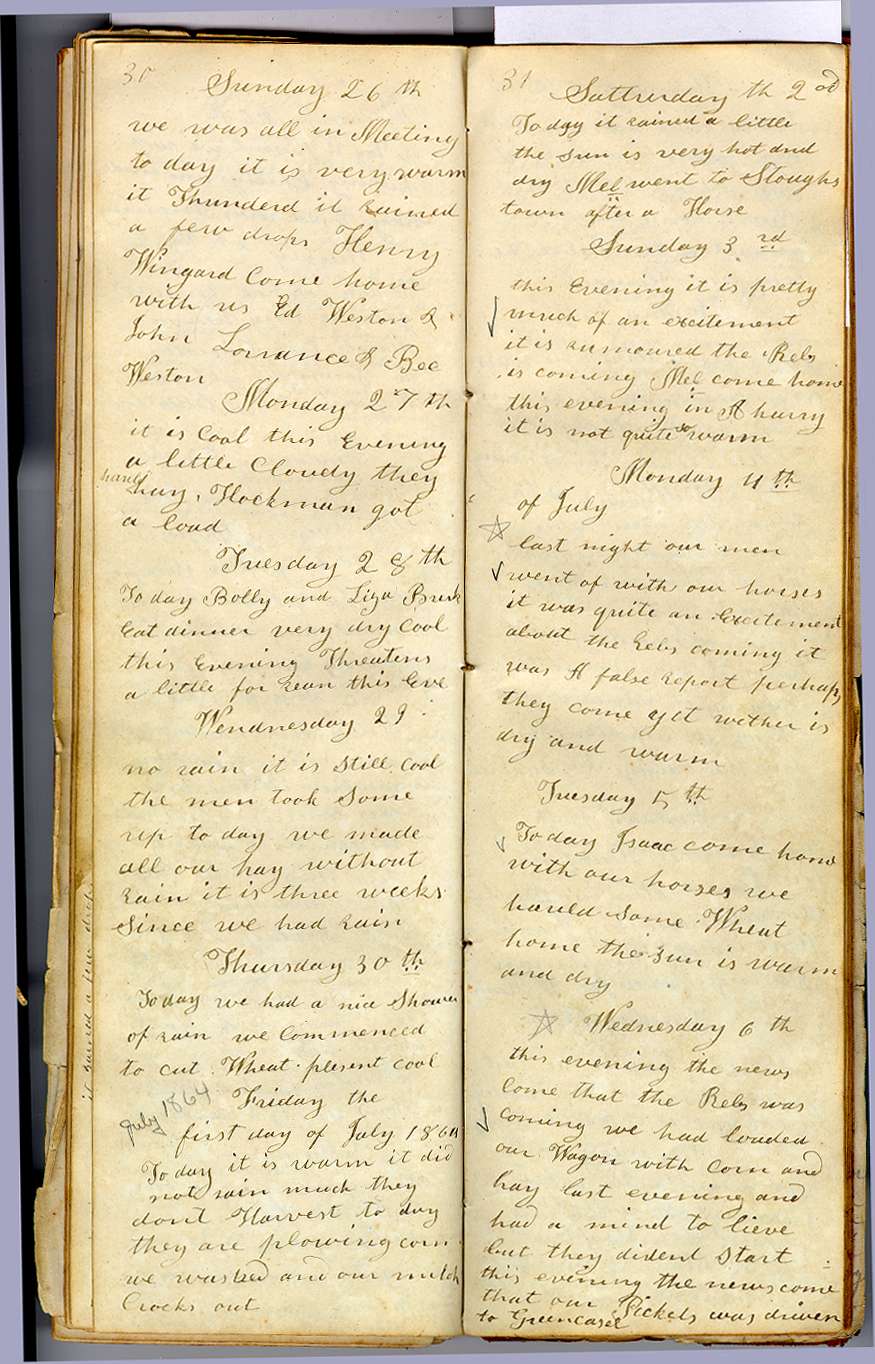 30
Sunday 26 th
we was all in Meeting
to day it is very warm
it Thunderd it rained
a few drops Henry
Wingard Come home
with us Ed Weston &
John Lorrance & Bee
Weston
Monday 27 th
it is Cool this Evening
a little Cloudy they
hauld
hay, Hockman got
a load
Tuesday 28 th
To day Bolly and Liza
Eat dinner very dry Cool
this Evening Threatens
a little for rean this Eve
Wendnesday 29
no rain it is still Cool
the men took Some
up to day we made
all our hay without
rain it is three weeks
Since we had rain
Thursday 30 th
To day we had a nice Shower
of rain we Commenced
to cut Wheat plesent cool
it rained a few drops
Friday the
July 1864
first day of July 1864
To day it is warm it did
not rain much they
dont Harvest to day
they are plowing corn
we washed and our milch
Crocks out
31
Satturday th 2 nd
To day it rained a little
the sun is very hot and
dry Mel went to Stoughs
town after a Horse
Sunday 3 rd
this Evening it is pretty
much of an excitement
it is rumoured the Rebs
is coming Mel come home
this evening in A hurry
it is not quite so warm
Monday 4 th
of July
last night our men
went of with our horses
it was quite an Excitement
about the Rebs coming it
was A false report perhaps
they come yet wether is
dry and warm
Tuesday 5 th
To day Isaac come home
with our horses we
hauld Some Wheat
home the sun is warm
and dry
Wednesday 6 th
this evening the news
Come that the Rebs was
Coming we had loaded
our Wagon with Corn and
hay last evening and
had a mind to lieve
but they dident Start
this evening the news come
that our Pickets was driven
to Greencasel